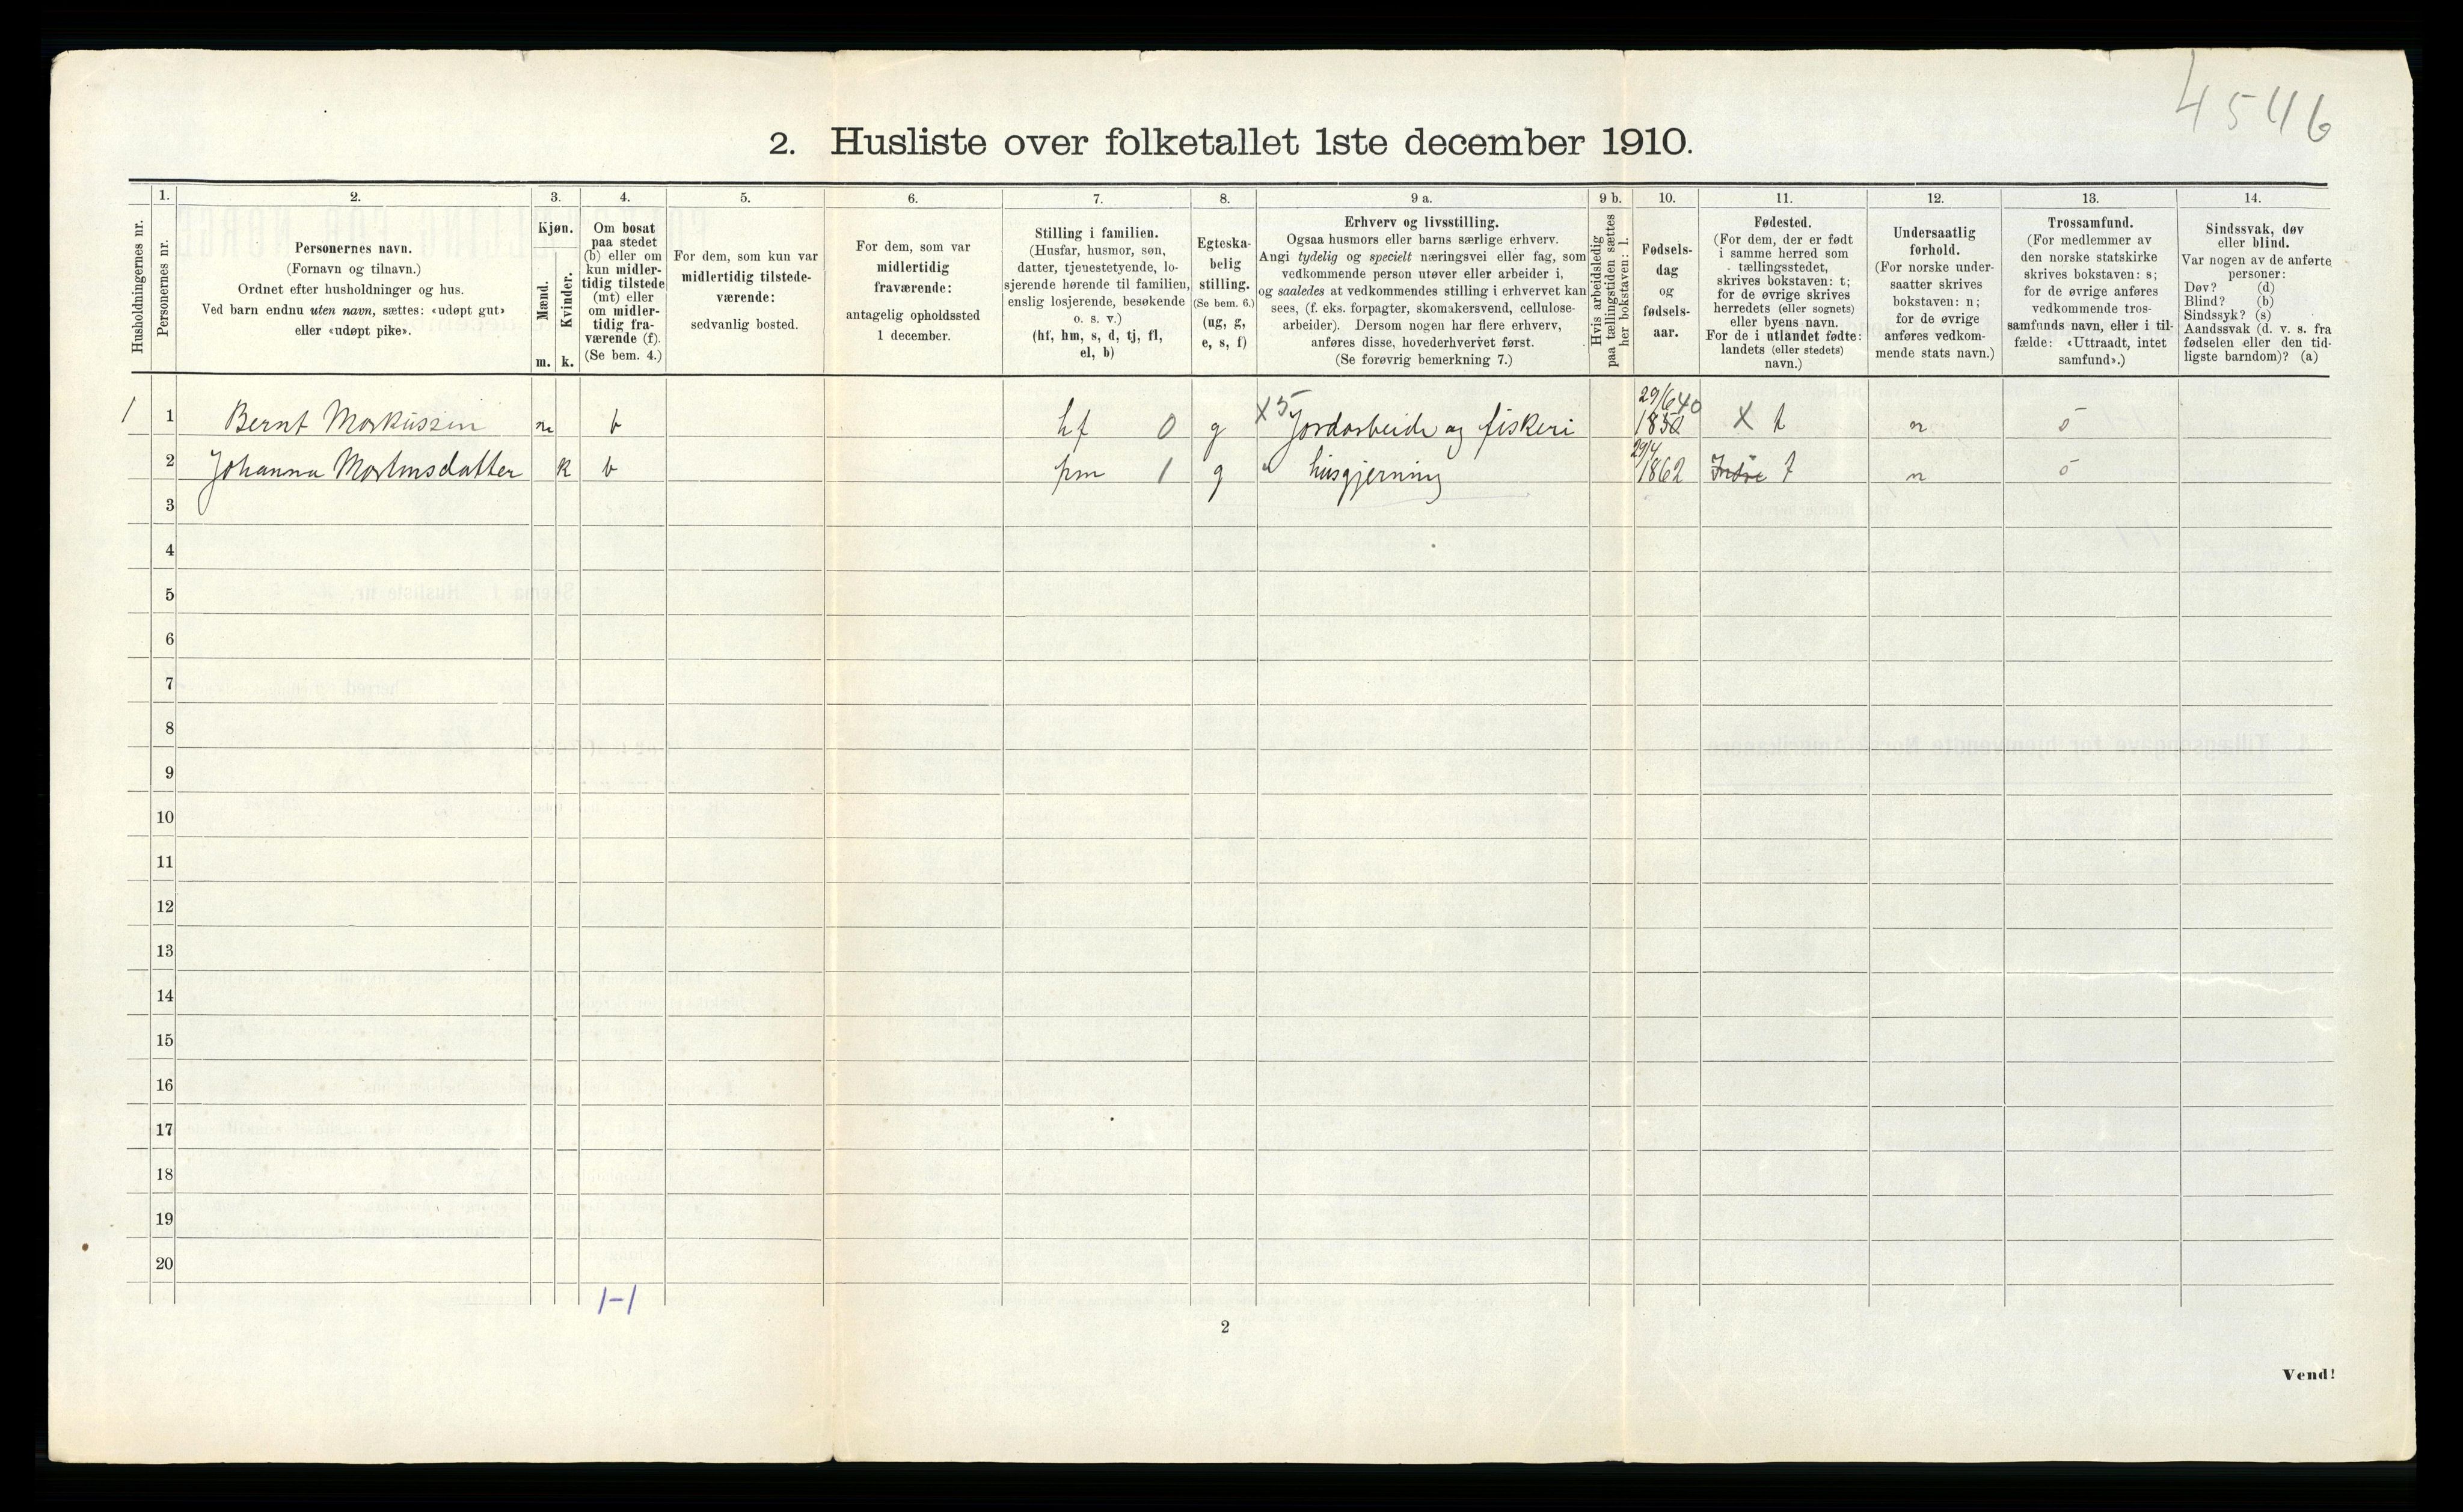 4546
2. Husliste over folketallet 1ste december 1910.
Husholdningernes nr.
1.
Personernes nr.
2.
Personernes navn.
(Fornavn og tilnavn.)
Ordnet efter husholdninger og hus.
Ved barn endnu uten navn, sættes: «udøpt gut»
eller «udøpt pike».
3.
Kjøn.
Mænd.
Kvinder.
m. k.
4.
Om bosat
paa stedet
(b) eller om
kun midler-
tidig tilstede
(mt) eller
om midler-
tidig fra-
værende (f).
(Se bem. 4.)
5.
For dem, som kun var
midlertidig tilstede-
værende:
sedvanlig bosted.
6.
For dem, som var
midlertidig
fraværende:
antagelig opholdssted
1 december.
7.
Stilling i familien.
(Husfar, husmor, søn,
datter, tjenestetyende, lo-
sjerende hørende til familien,
enslig losjerende, besøkende
o. s. v.)
(hf, hm, s, d, tj, fl,
el, b)
8.
Egteska-
belig
stilling.
(Se bem. 6.)
(ug, g,
e, s, f)
9 a.
Erhverv og livsstilling.
Ogsaa husmors eller barns særlige erhverv.
Angi tydelig og specielt næringsvei eller fag, som
vedkommende person utøver eller arbeider i,
og saaledes at vedkommendes stilling i erhvervet kan
sees, (f. eks. forpagter, skomakersvend, cellulose-
arbeider). Dersom nogen har flere erhverv,
anføres disse, hovederhvervet først.
(Se forøvrig bemerkning 7.)
9 b.
Hvis arbeidsledig
paa tællingstiden sættes
her bokstaven: l.
10.
Fødsels-
dag
og
fødsels-
aar.
11.
Fødested.
(For dem, der er født
i samme herred som
tællingsstedet,
skrives bokstaven: t;
for de øvrige skrives
herredets (eller sognets)
eller byens navn.
For de i utlandet fødte:
landets (eller stedets)
navn.)
12.
Undersaatlig
forhold.
(For norske under-
saatter skrives
bokstaven: n;
for de øvrige
anføres vedkom-
mende stats navn.)
13.
Trossamfund.
(For medlemmer av
den norske statskirke
skrives bokstaven: s;
for de øvrige anføres
vedkommende tros-
samfunds navn, eller i til-
fælde: «Uttraadt, intet
samfund».)
14.
Sindssvak, døv
eller blind.
Var nogen av de anførte
personer:
Døv? (d)
Blind? (b)
Sindssyk? (s)
Aandssvak (d. v. s. fra
fødselen eller den tid-
ligste barndom)? (a)
1 1 Bernt Markussen m b hf 0 g X 5 Jordarbeide og fiskeri 29/6 40 1850 X t n s
2 Johanna Mortensdatter k b hm 1 g " husgjerning 29/4 1862 t n s
3
4
5
6
7
8
9
10
11
12
13
14
15
16
17
18
19
20
1-1
2
Vend!